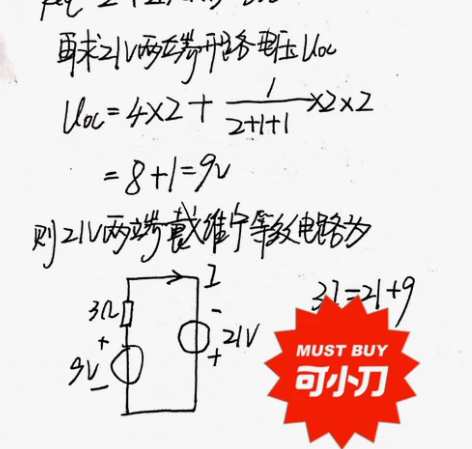 再求21V两端开路电压Uoc
Uoc=4×2+1/(2+1+1)×2×2
=8+1=9V
则21V两端戴维宁等效电路为
I
3Ω
3I=21+9
-
+
21V
9V
+
-
MUST BUY
可小刀